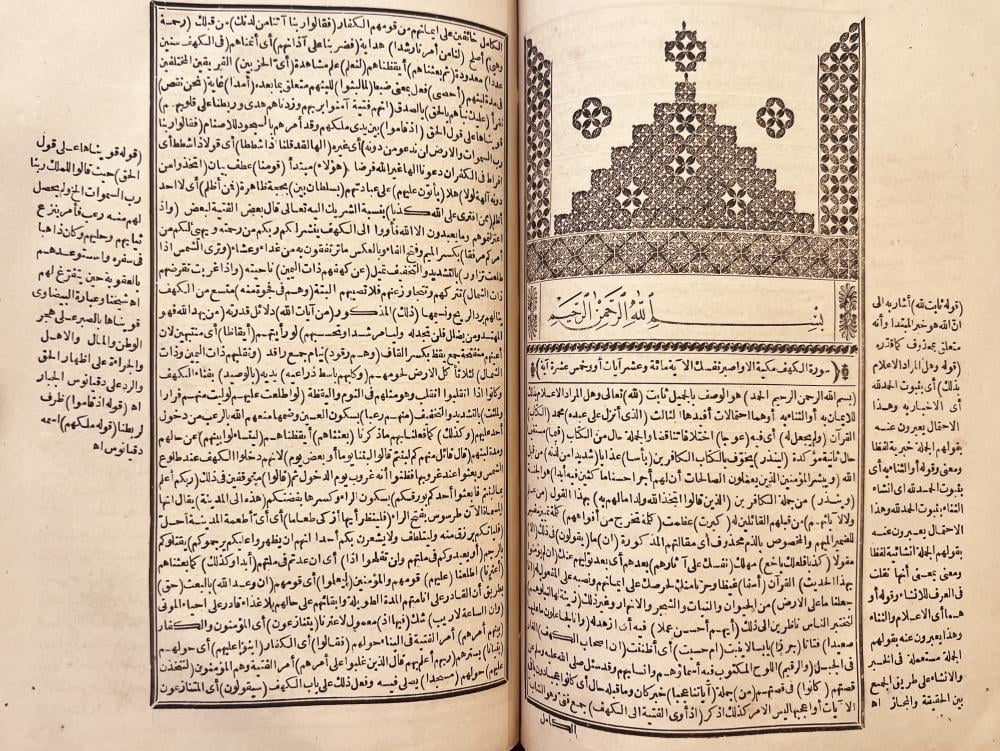 بسم الله الرحمن الرحيم
(سورة الكهف مكية الا واصبر نفسك الآية مائة وعشر آيات أو وخمس عشرة آية)
(بسم الله الرحمن الرحيم الحمد) هو الوصف بالجميل ثابت (لله) تعالى وهل المراد الاعلام بذلك
للايمان به أو الثناء به أو هما احتمالات أفيدها الثالث (الذى أنزل على عبده) محمد (الكتاب)
القرآن (ولم يجعل له) أى فيه (عوجا) اختلافا وتناقضا والجملة حال من الكتاب (قيما) مستقيما
حال ثانية مؤكدة (لينذر) يخوف بالكتاب الكافرين (بأسا) عذابا (شديدا من لدنه) من قبل
الله (ويبشر المؤمنين الذين يعملون الصالحات أن لهم أجرا حسنا ماكثين فيه أبدا) هو الجنة
(وينذر) من جملة الكافرين (الذين قالوا اتخذ الله ولدا ما لهم به) بهذا القول (من علم
ولا لآبائهم) من قبلهم القائلين له (كبرت) عظمت (كلمة تخرج من أفواههم) كلمة تمييز مفسر
للضمير المبهم والمخصوص بالذم محذوف أى مقالتهم المذكورة (ان) ما (يقولون) فى ذلك (الا)
مقولا (كذبا فلعلك باخع) مهلك (نفسك على آثارهم) بعدهم أى بعد توليهم عنك (ان لم يؤمنوا
بهذا الحديث) القرآن (أسفا) غيظا وحزنا منك لحرصك على ايمانهم ونصبه على المفعول له (انا
جعلنا ما على الارض) من الحيوان والنبات والشجر والانهار وغير ذلك (زينة لها لنبلوهم)
لنختبر الناس ناظرين الى ذلك (أيهم أحسن عملا) فيه أى أزهد له (وانا لجاعلون ما عليها
صعيدا) فتاتا (جرزا) يابسا لا ينبت (أم حسبت) أى أظننت (ان أصحاب الكهف) الغار
فى الجبل (والرقيم) اللوح المكتوب فيه أسماؤهم وانسابهم وقد سئل صلى الله عليه وسلم عن
قصتهم (كانوا) فى قصتهم (من) جملة (آياتنا عجبا) خبر كان وما قبله حال أى كانوا عجبا دون باقى
الآيات أو أعجبها ليس الامر كذلك اذكر (اذ أوى الفتية الى الكهف) جمع فتى وهو الشاب
الكامل
(قوله ثابت لله) أشار به الى
ان لله هو خبر المبتدا وأنه
متعلق بمحذوف كما قدره
(قوله وهل المراد الاعلام
بذلك) أى بثبوت الحمد لله
أى الاخبار به وهذا
الاحتمال يعبرون عنه
بقولهم الجملة خبرية لفظا
ومعنى وقوله أو الثناء به أى
بثبوت الحمد لله أى انشاء
الثناء بثبوت الحمد لله وهذا
الاحتمال يعبرون عنه
بقولهم الجملة انشائية لفظا
ومعنى بمعنى أنها نقلت
فى العرف للانشاء وقوله أو
هما أى الاعلام والثناء
وهذا يعبرون عنه بقولهم
الجملة مستعملة فى الخبر
والانشاء على طريق الجمع
بين الحقيقة والمجاز اه
الكامل خائفين على ايمانهم من قومهم الكفار (فقالوا ربنا آتنا من لدنك) من قبلك (رحمة
وهئ) أصلح (لنا من أمرنا رشدا) هداية (فضربنا على آذانهم) أى أنمناهم (فى الكهف سنين
عددا) معدودة (ثم بعثناهم) أيقظناهم (لنعلم) علم مشاهدة (أى الحزبين) الفريقين المختلفين
فى مدة لبثهم (أحصى) فعل بمعنى ضبط (لما لبثوا) للبثهم متعلق بما بعده (أمدا) غاية (نحن نقص)
نقرأ (عليك نبأهم بالحق) بالصدق (انهم فتية آمنوا بربهم وزدناهم هدى وربطنا على قلوبهم)
قويناها على قول الحق (اذ قاموا) بين يدى ملكهم وقد أمرهم بالسجود للاصنام (فقالوا ربنا
رب السموات والارض لن ندعو من دونه) أى غيره (الها لقد قلنا اذا شططا) أى قولا ذا شطط أى
افراط فى الكفر ان دعونا الها غير الله فرضا (هؤلاء) مبتدأ (قومنا) عطف بيان (اتخذوا من
دونه آلهة لولا) هلا (يأتون عليهم) على عبادتهم (بسلطان بين) بحجة ظاهرة (فمن أظلم) أى لا أحد
أظلم (ممن افترى على الله كذبا) بنسبة الشريك اليه تعالى قال بعض الفتية لبعض (واذ
اعتزلتموهم وما يعبدون الا الله فأووا الى الكهف ينشر لكم ربكم من رحمته ويهيئ لكم من
أمركم مرفقا) بكسر الميم وفتح الفاء وبالعكس ما ترتفقون به من غداء وعشاء (وترى الشمس اذا
طلعت تزاور) بالتشديد والتخفيف تميل (عن كهفهم ذات اليمين) ناحيته (واذا غربت تقرضهم
ذات الشمال) تتركهم وتتجاوز عنهم فلا تصيبهم البتة (وهم فى فجوة منه) متسع من الكهف
ينالهم برد الريح ونسيمها (ذلك) المذكور (من آيات الله) دلائل قدرته (من يهد الله فهو
المهتد ومن يضلل فلن تجد له وليا مرشدا وتحسبهم) لو رأيتهم (أيقاظا) أى منتبهين لان
أعينهم منفتحة جمع يقظ بكسر القاف (وهم رقود) نيام جمع راقد (ونقلبهم ذات اليمين وذات
الشمال) لئلا تأكل الارض لحومهم (وكلبهم باسط ذراعيه) يديه (بالوصيد) بفناء الكهف
وكانوا اذا انقلبوا انقلب وهو مثلهم فى النوم واليقظة (لو اطلعت عليهم لوليت منهم فرارا
ولملئت) بالتشديد والتخفيف (منهم رعبا) بسكون العين وضمها منعهم الله بالرعب من دخول
أحد عليهم (وكذلك) كما فعلنا بهم ما ذكرنا (بعثناهم) أيقظناهم (ليتساءلوا بينهم) عن حالهم
ومدة لبثهم (قال قائل منهم كم لبثتم قالوا لبثنا يوما أو بعض يوم) لانهم دخلوا الكهف عند طلوع
الشمس وبعثوا عند غروبها فظنوا أنه غروب يوم الدخول ثم (قالوا) متوقفين فى ذلك (ربكم أعلم
بما لبثتم فابعثوا أحدكم بورقكم) بسكون الراء وكسرها بفضتكم (هذه الى المدينة) يقال انها
المسماة الآن طرسوس بفتح الراء (فلينظر أيها أزكى طعاما) أى أى أطعمة المدينة أحل
(فليأتكم برزق منه وليتلطف ولا يشعرن بكم أحدا انهم ان يظهروا عليكم يرجموكم) يقتلوكم
بالرجم (أو يعيدوكم فى ملتهم ولن تفلحوا اذا) أى ان عدتم فى ملتهم (أبدا وكذلك) كما بعثناهم
(أعثرنا) اطلعنا (عليهم) قومهم والمؤمنين (ليعلموا) أى قومهم (ان وعد الله) بالبعث (حق)
بطريق أن القادر على انامتهم المدة الطويلة وابقائهم على حالهم بلا غذاء قادر على احياء الموتى
(وان الساعة لا ريب) شك (فيها اذ) معمول لاعثرنا (يتنازعون) أى المؤمنون والكفار
(بينهم أمرهم) أمر الفتية فى البناء حولهم (فقالوا) أى الكفار (ابنوا عليهم) أى حولهم
(بنيانا) يسترهم (ربهم أعلم بهم قال الذين غلبوا على أمرهم) أمر الفتية وهم المؤمنون (لنتخذن
عليهم) حولهم (مسجدا) يصلى فيه وفعل ذلك على باب الكهف (سيقولون) أى المتنازعون
(قوله قويناها على قول
الحق) حيث قالوا للملك ربنا
رب السموات الخ ولم يحصل
لهم منه رعب فأمر بنزع
ثيابهم وحليهم وكان ذاهبا
فى سفره واستوعدهم
بالعقوبة حين يتفرغ لهم
اه شيخنا وعبارة البيضاوى
قويناها بالصبر على هجر
الوطن والمال والاهل
والجراءة على اظهار الحق
والرد على دقيانوس الجبار
اه (قوله اذ قاموا) ظرف
لربطنا (قوله ملكهم) اسمه
دقيانوس اه